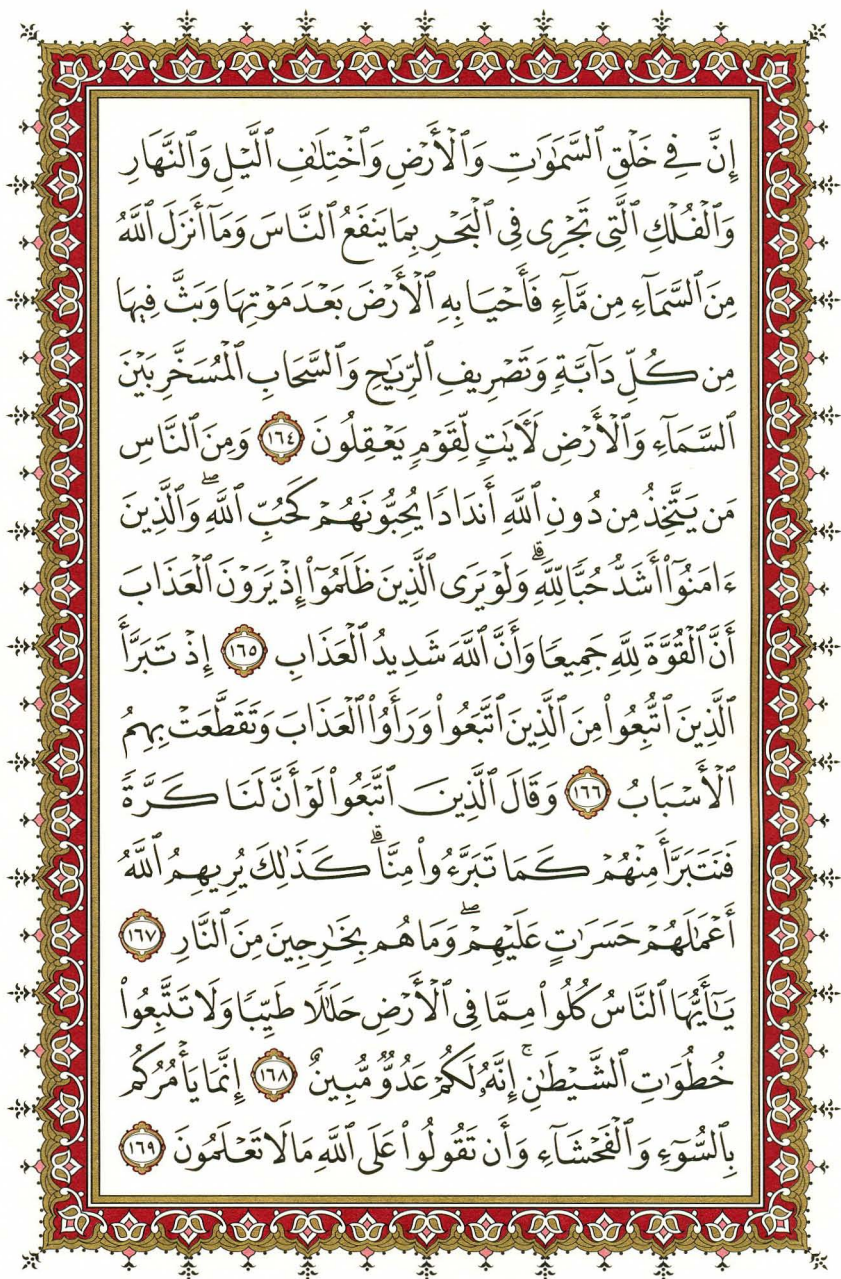 إِنَّ فِي خَلْقِ ٱلسَّمَٰوَٰتِ وَٱلْأَرْضِ وَٱخْتِلَٰفِ ٱلَّيْلِ وَٱلنَّهَارِ
وَٱلْفُلْكِ ٱلَّتِى تَجْرِى فِى ٱلْبَحْرِ بِمَا يَنفَعُ ٱلنَّاسَ وَمَآ أَنزَلَ ٱللَّهُ
مِنَ ٱلسَّمَآءِ مِن مَّآءٍ فَأَحْيَا بِهِ ٱلْأَرْضَ بَعْدَ مَوْتِهَا وَبَثَّ فِيهَا
مِن كُلِّ دَآبَّةٍ وَتَصْرِيفِ ٱلرِّيَٰحِ وَٱلسَّحَابِ ٱلْمُسَخَّرِ بَيْنَ
ٱلسَّمَآءِ وَٱلْأَرْضِ لَءَايَٰتٍ لِّقَوْمٍ يَعْقِلُونَ ١٦٤ وَمِنَ ٱلنَّاسِ
مَن يَتَّخِذُ مِن دُونِ ٱللَّهِ أَندَادًا يُحِبُّونَهُمْ كَحُبِّ ٱللَّهِ ۖ وَٱلَّذِينَ
ءَامَنُوٓا۟ أَشَدُّ حُبًّا لِّلَّهِ ۗ وَلَوْ يَرَى ٱلَّذِينَ ظَلَمُوٓا۟ إِذْ يَرَوْنَ ٱلْعَذَابَ
أَنَّ ٱلْقُوَّةَ لِلَّهِ جَمِيعًا وَأَنَّ ٱللَّهَ شَدِيدُ ٱلْعَذَابِ ١٦٥ إِذْ تَبَرَّأَ
ٱلَّذِينَ ٱتُّبِعُوا۟ مِنَ ٱلَّذِينَ ٱتَّبَعُوا۟ وَرَأَوُا۟ ٱلْعَذَابَ وَتَقَطَّعَتْ بِهِمُ
ٱلْأَسْبَابُ ١٦٦ وَقَالَ ٱلَّذِينَ ٱتَّبَعُوا۟ لَوْ أَنَّ لَنَا كَرَّةً
فَنَتَبَرَّأَ مِنْهُمْ كَمَا تَبَرَّءُوا۟ مِنَّا ۗ كَذَٰلِكَ يُرِيهِمُ ٱللَّهُ
أَعْمَٰلَهُمْ حَسَرَٰتٍ عَلَيْهِمْ ۖ وَمَا هُم بِخَٰرِجِينَ مِنَ ٱلنَّارِ ١٦٧
يَٰٓأَيُّهَا ٱلنَّاسُ كُلُوا۟ مِمَّا فِى ٱلْأَرْضِ حَلَٰلًا طَيِّبًا وَلَا تَتَّبِعُوا۟
خُطُوَٰتِ ٱلشَّيْطَٰنِ ۚ إِنَّهُۥ لَكُمْ عَدُوٌّ مُّبِينٌ ١٦٨ إِنَّمَا يَأْمُرُكُم
بِٱلسُّوٓءِ وَٱلْفَحْشَآءِ وَأَن تَقُولُوا۟ عَلَى ٱللَّهِ مَا لَا تَعْلَمُونَ ١٦٩